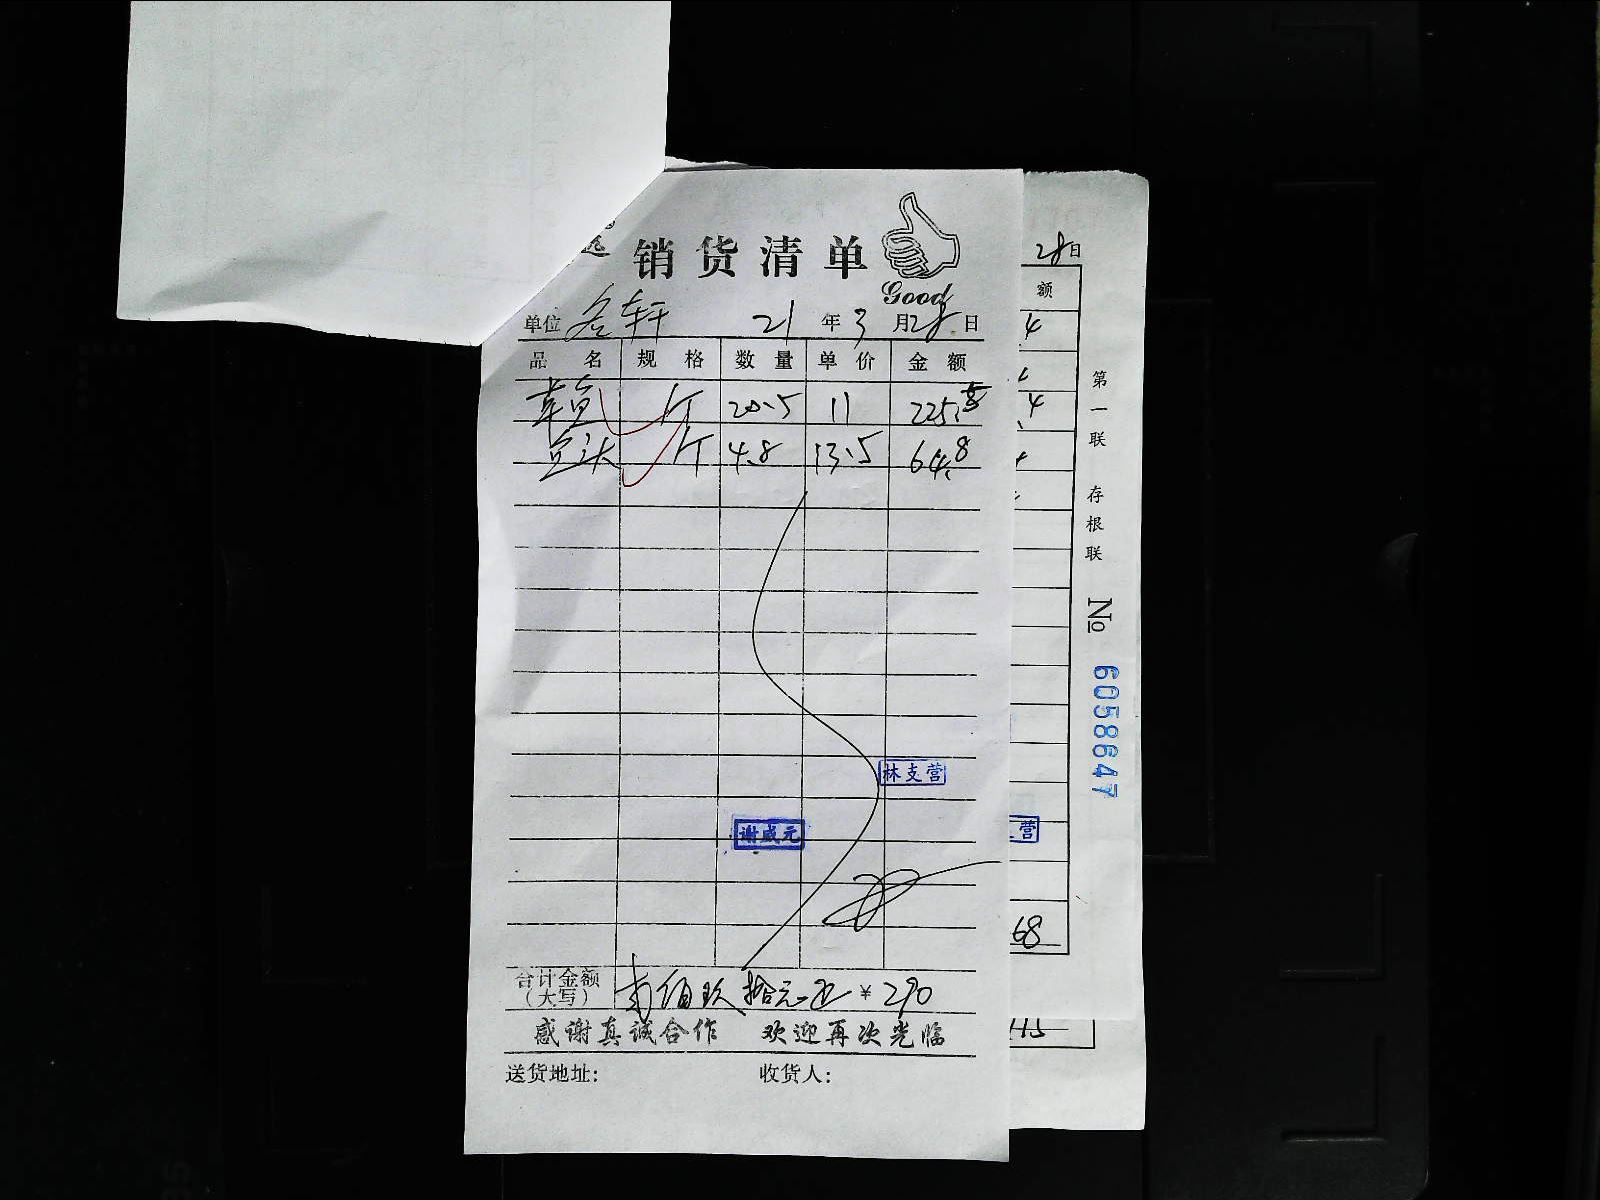 销货清单
Good
单位 轩 21年3月28日
品名 规格 数量 单价 金额
草鱼 斤 20.5 11 225.5
鱼头 斤 4.8 13.5 64.8
林支营
谢成元
合计金额(大写) 贰佰玖拾元正 ¥290
感谢真诚合作 欢迎再次光临
送货地址: 收货人:
28日
额
4
4
营
68
第一联 存根联 № 6058647